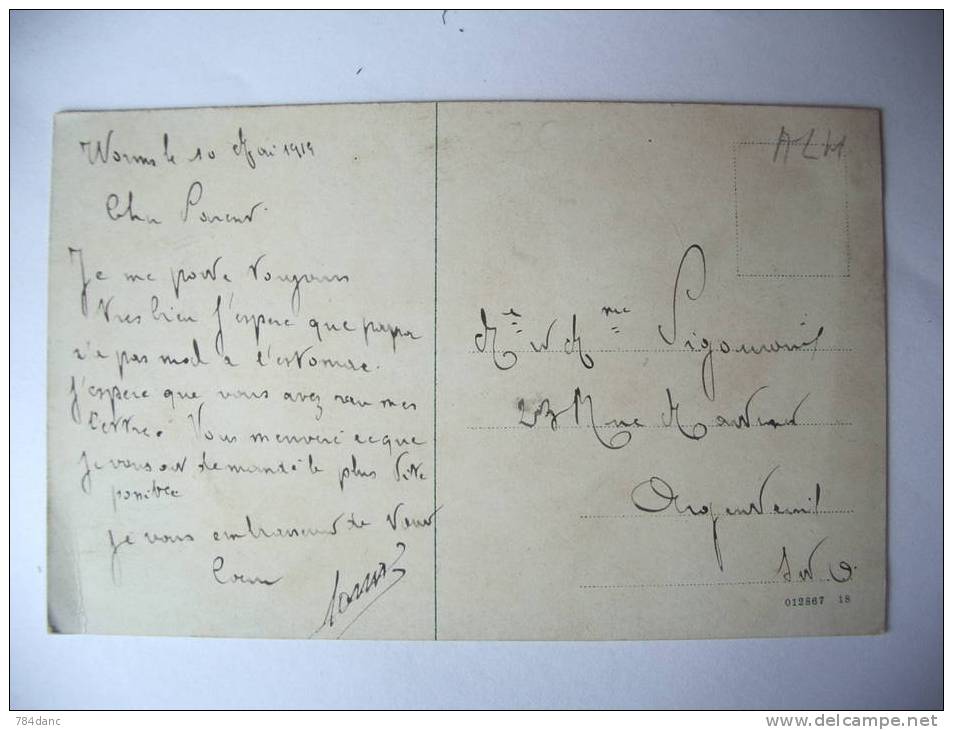 Worms le 10 Mai 1919
Cher Parent
Je me porte toujours
tres bien J'espere que papa
n'a pas mal a l'estomac.
J'espere que vous avez reçu mes
lettre. Vous menveré ce que
je vous ait demandé le plus vite
posible
je vous embrasse de tout
Coeur
ALM
Mr et Mme Pigamont
23 Rue
Argenteuil
S et O.
012867 18
784danc
www.delcampe.net